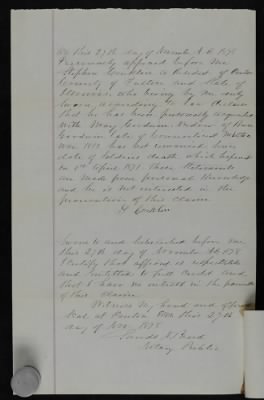 On this 27th day of November A.D. 1878
Personally appeared before me
Stephen a Resident of Canton
County of Fulton and State of
Illinois who being by me duly
Sworn according to law declares
that he has been personally acquainted
with Mary Gardner Widow of
Gardner late of
War 1812 has not remarried since
date of Soldiers death which
on 4th April 1871 These Statements
are made from personal Knowledge
and he is not interested in the
prosecution of this Claim
Sworn to and Subscribed before me
this 27th day of November A.D. 1878
I Certify that affiant is respectable
and entitled to full Credit and
that I have no interest in the
of this claim
Witness my hand and official
Seal at Canton this 27th
day of Nov 1878
Notary Public